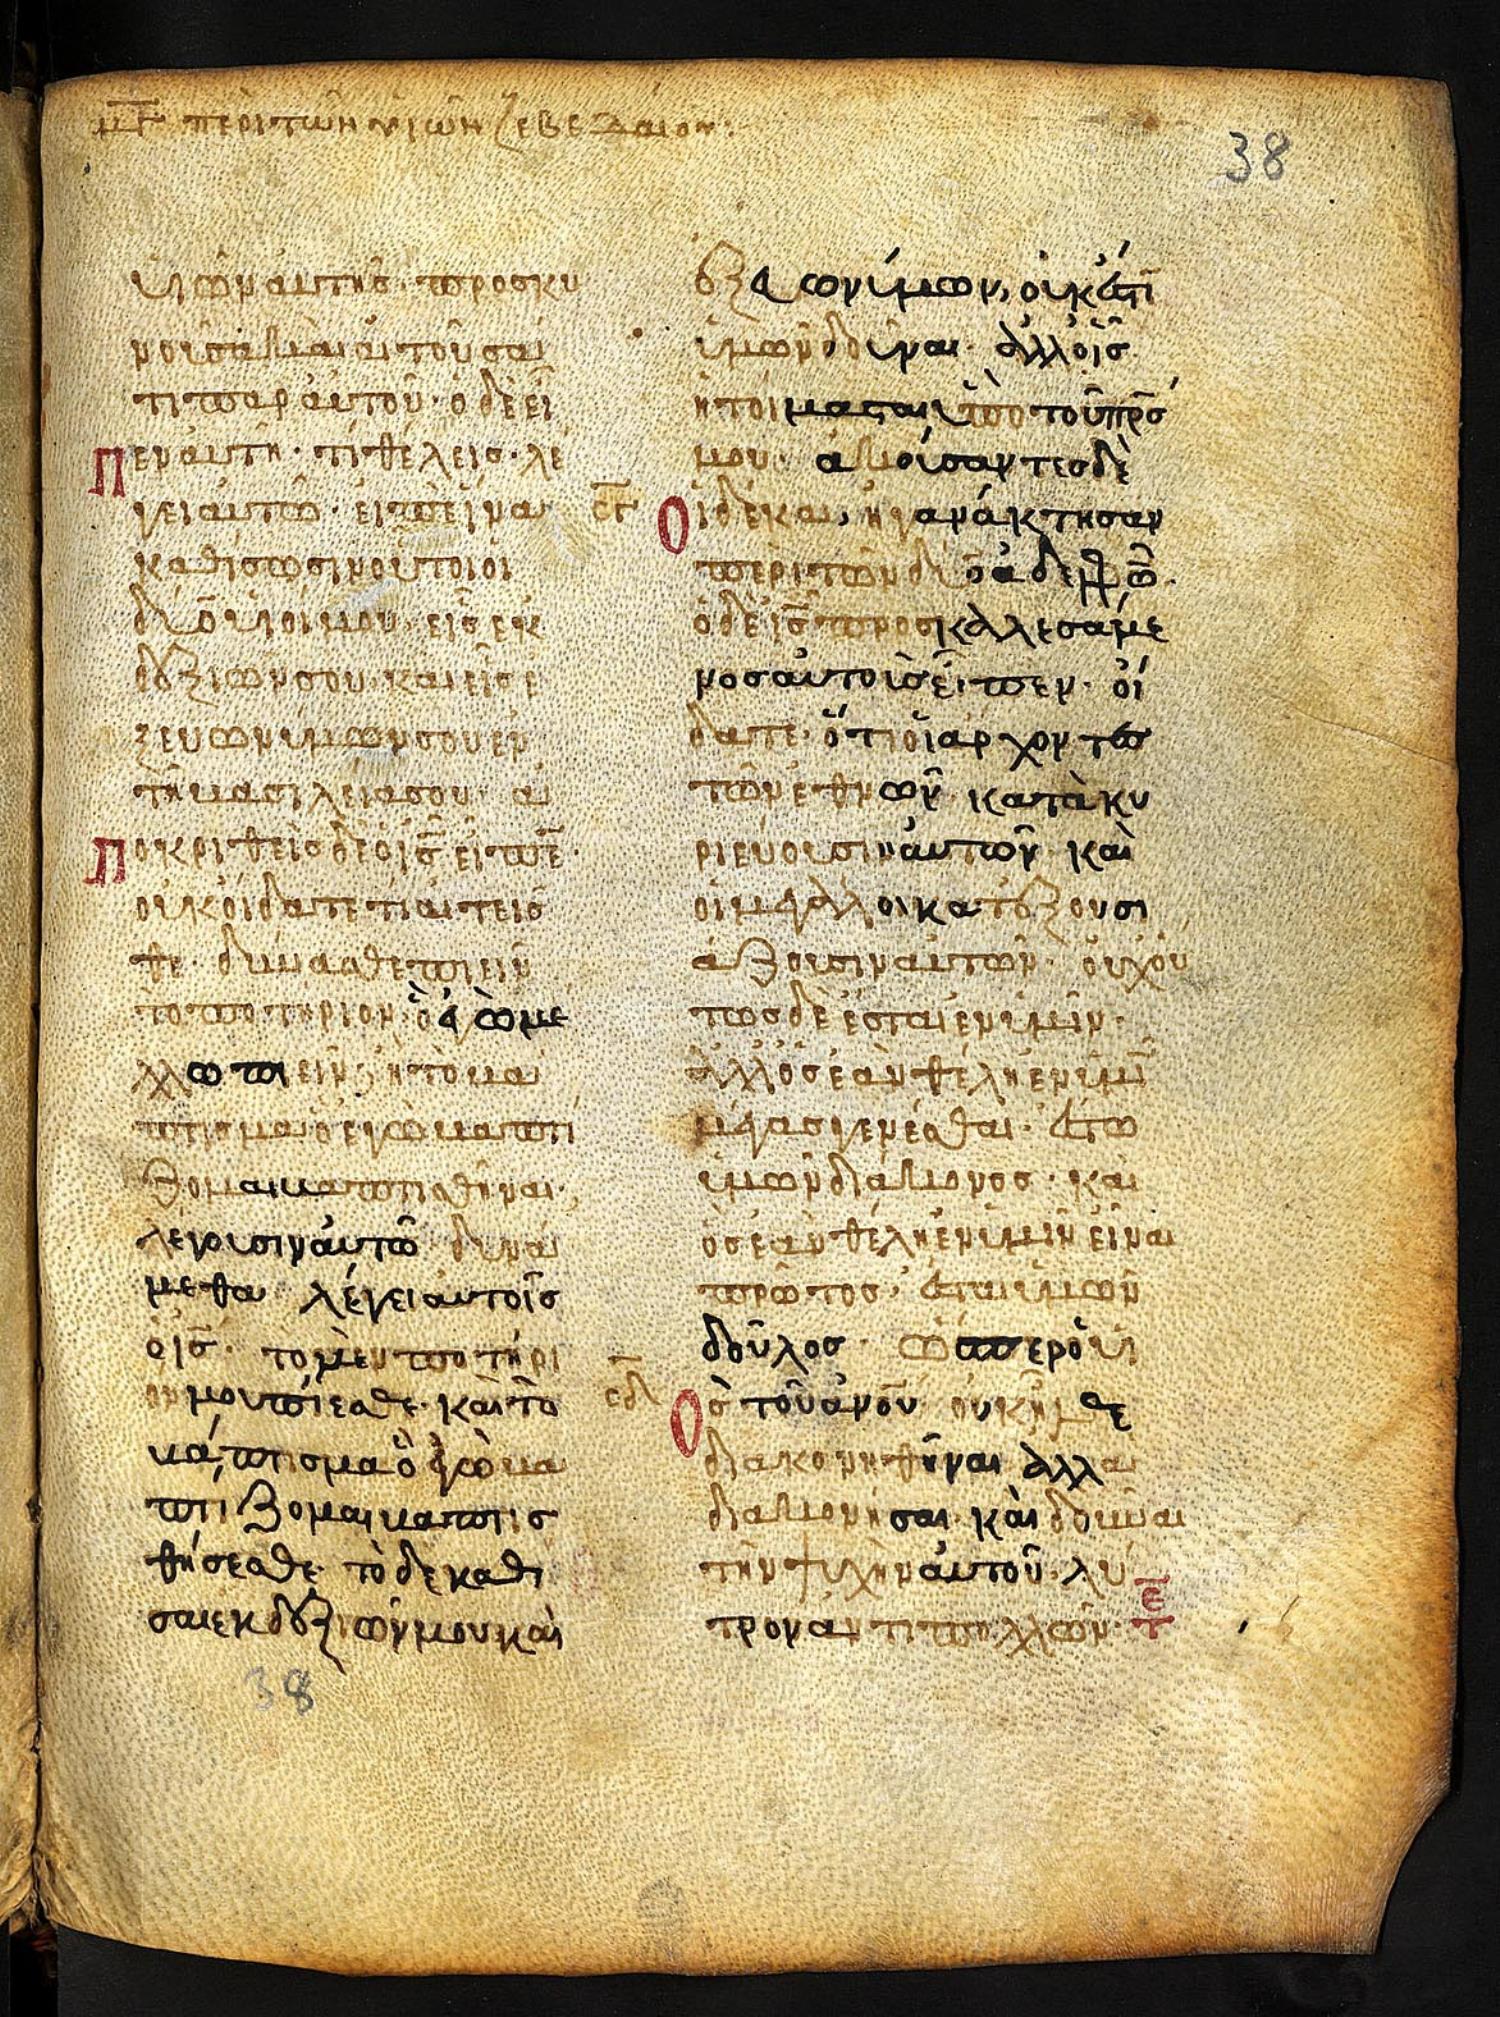 μγ περὶ τῶν υἱῶν ζεβεδαίου:
38
υἱῶν αὐτῆς· προσκυ
νοῦσα καὶ αἰτοῦσαί
τι παρ αὐτοῦ· ὁ δὲ εἶ
πεν αὐτῆ· τί θέλεις· λέ
γει αὐτῶ· εἰπὲ ἵνα
καθίσωσιν οὗτοι οἱ
δύο υἱοί μου· εἷς ἐκ
δεξιῶν σου καὶ εἷς ἐ
ξ εὐωνύμων σου ἐν
τῆ βασιλεία σου· ἀ
ποκριθεὶς δὲ ὁ ις εἶπε·
οὐκ οἴδατε τί αἰτεῖσ
θε· δύνασθε πιεῖν
τὸ ποτήριον ὃ ἐγὼ μέ
λλω πιεῖν; ἢ τὸ βά
πτισμα ὃ ἐγὼ βαπτί
ζομαι βαπτισθῆναι·
λέγουσιν αὐτῶ δυνά
μεθα λέγει αὐτοῖς
ὁ ις· τὸ μὲν ποτήρι
ον μου πίεσθε· καὶ τὸ
βάπτισμα ὃ ἐγὼ βα
πτίζομαι βαπτισ
θήσεσθε· τὸ δὲ καθί
σαι ἐκ δεξιῶν μου καὶ
38
ἐξ εὐωνύμων, οὐκ ἔστι
ἐμὸν δοῦναι· ἀλλ οἷς
ἡτοίμασται ὑπὸ τοῦ πρς
μου· ἀκούσαντες δὲ
σγ
οἱ δέκα, ἠγανάκτησαν
περὶ τῶν δύο ἀδελφῶ·
ὁ δὲ ις προσκαλεσάμε
νος αὐτοὺς εἶπεν· οἴ
δατε· ὅτι οἱ ἄρχοντες
τῶν ἐθνῶν κατακυ
ριεύουσιν αὐτῶν καὶ
οἱ μεγάλοι κατεξουσι
άζουσιν αὐτῶν· οὐχ οὕ
τως δὲ ἔσται ἐν ὑμῖν·
ἀλλ ὃς ἐὰν θέλη ἐν ὑμῖ
μέγας γενέσθαι· ἔστω
ὑμῶν διάκονος· καὶ
ὃς ἐὰν θέλη ἐν ὑμῖν εἶναι
πρῶτος· ἔσται ὑμῶν
δοῦλος· ὥσπερ ὁ υἱ
σδ
ὸς τοῦ ανου οὐκ ἦλθε
διακονηθῆναι ἀλλα
διακονῆσαι· καὶ δοῦναι
τὴν ψυχὴν αὐτοῦ· λύ
τρον ἀντὶ πολλῶν·